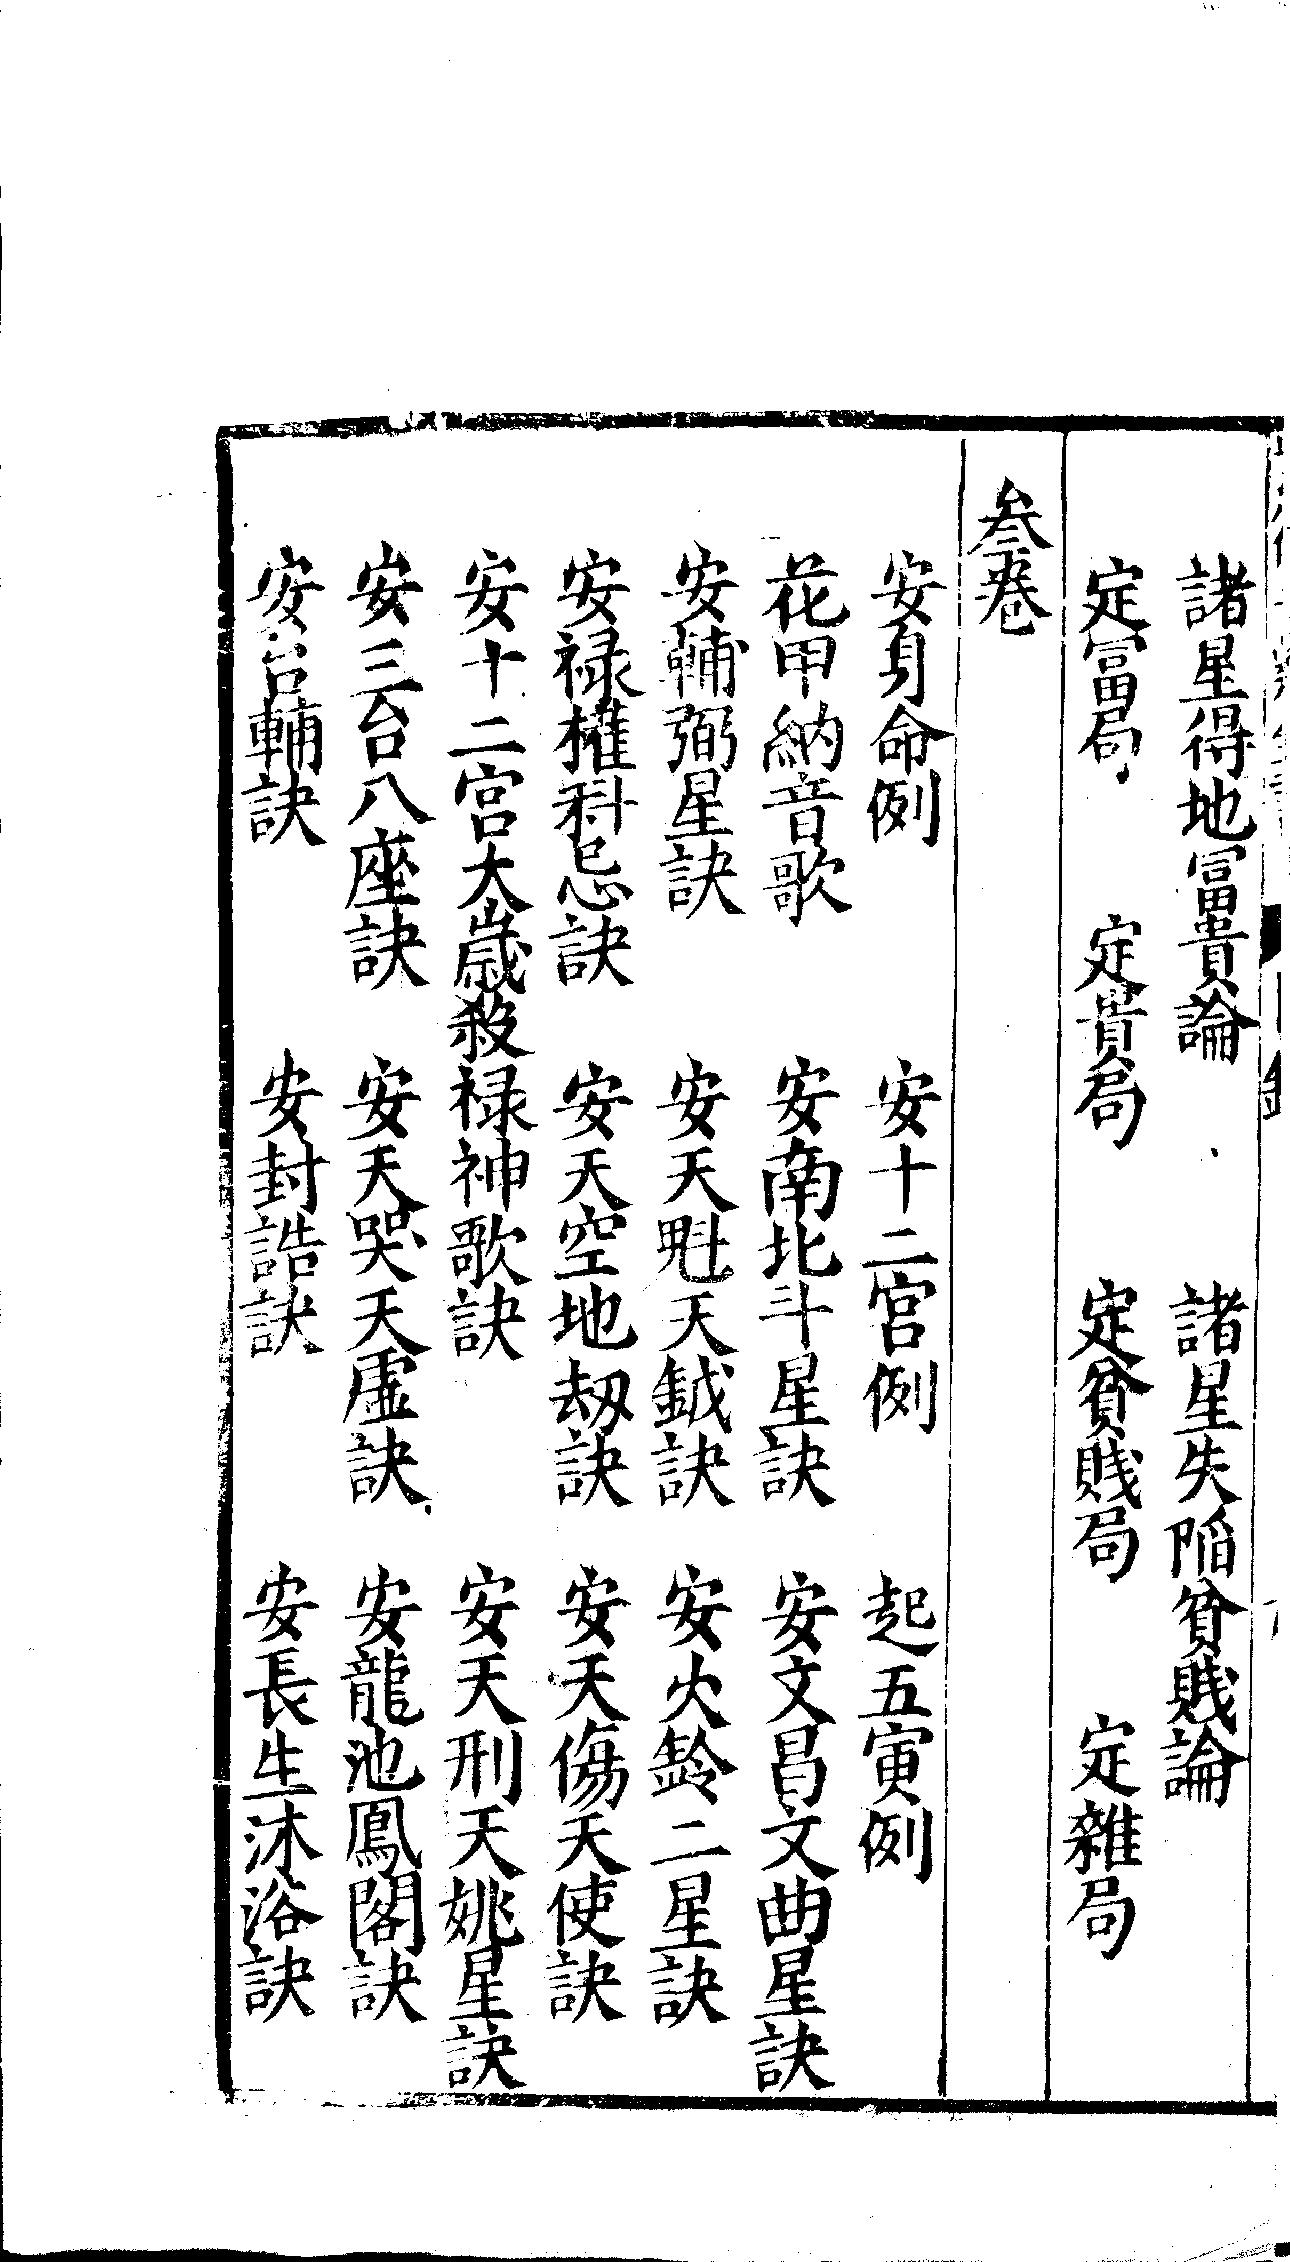 諸星得地冨貴論　諸星失陷貧賤論
定冨局　定貴局　定貧賤局　定雜局
叁卷
安身命例　安十二宮例　起五寅例
花甲納音歌　安南北斗星訣　安文昌文曲星訣
安輔弼星訣　安天魁天鉞訣　安火鈴二星訣
安禄權科忌訣　安天空地刼訣　安天傷天使訣
安十二宮太歲殺禄神歌訣　安天刑天姚星訣
安三台八座訣　安天哭天虛訣　安龍池鳳閣訣
安台輔訣　安封誥訣　安長生沐浴訣